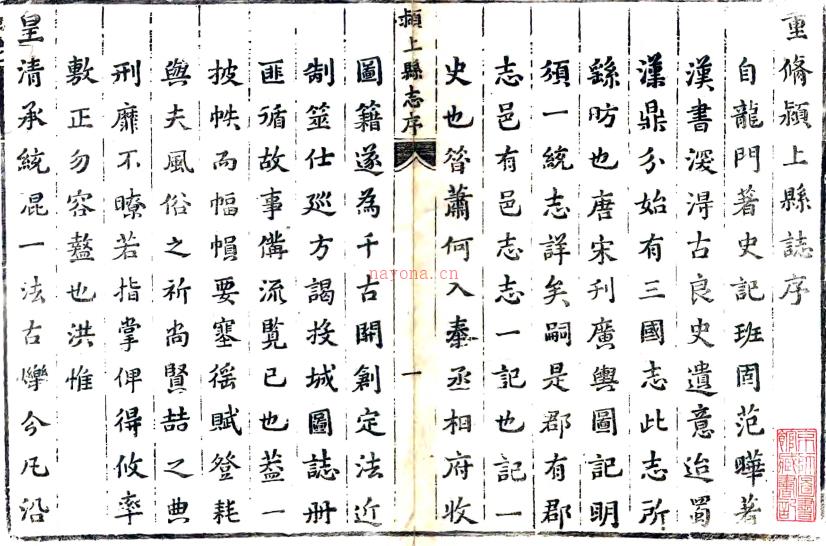 重脩潁上縣誌序
自龍門著史記班固范曄著
漢書深得古良史遺意迨蜀
漢鼎分始有三國志此志所
繇昉也唐宋刊廣輿圖記明
須一統志詳矣嗣是郡有郡
志邑有邑志志一記也記一
史也昝蕭何入秦丞相府收
潁上縣志序
一
圖籍遂為千古開創定法近
制筮仕巡方謁投城圖誌冊
匪循故事偹流覽已也葢一
披帙而幅幀要塞徭賦登耗
與夫風俗之祈尚賢喆之典
刑靡不暸若指掌俾得攸率
敷正勿容盭也洪惟
皇清承統混一法古爍今凡沿
nayona.cn